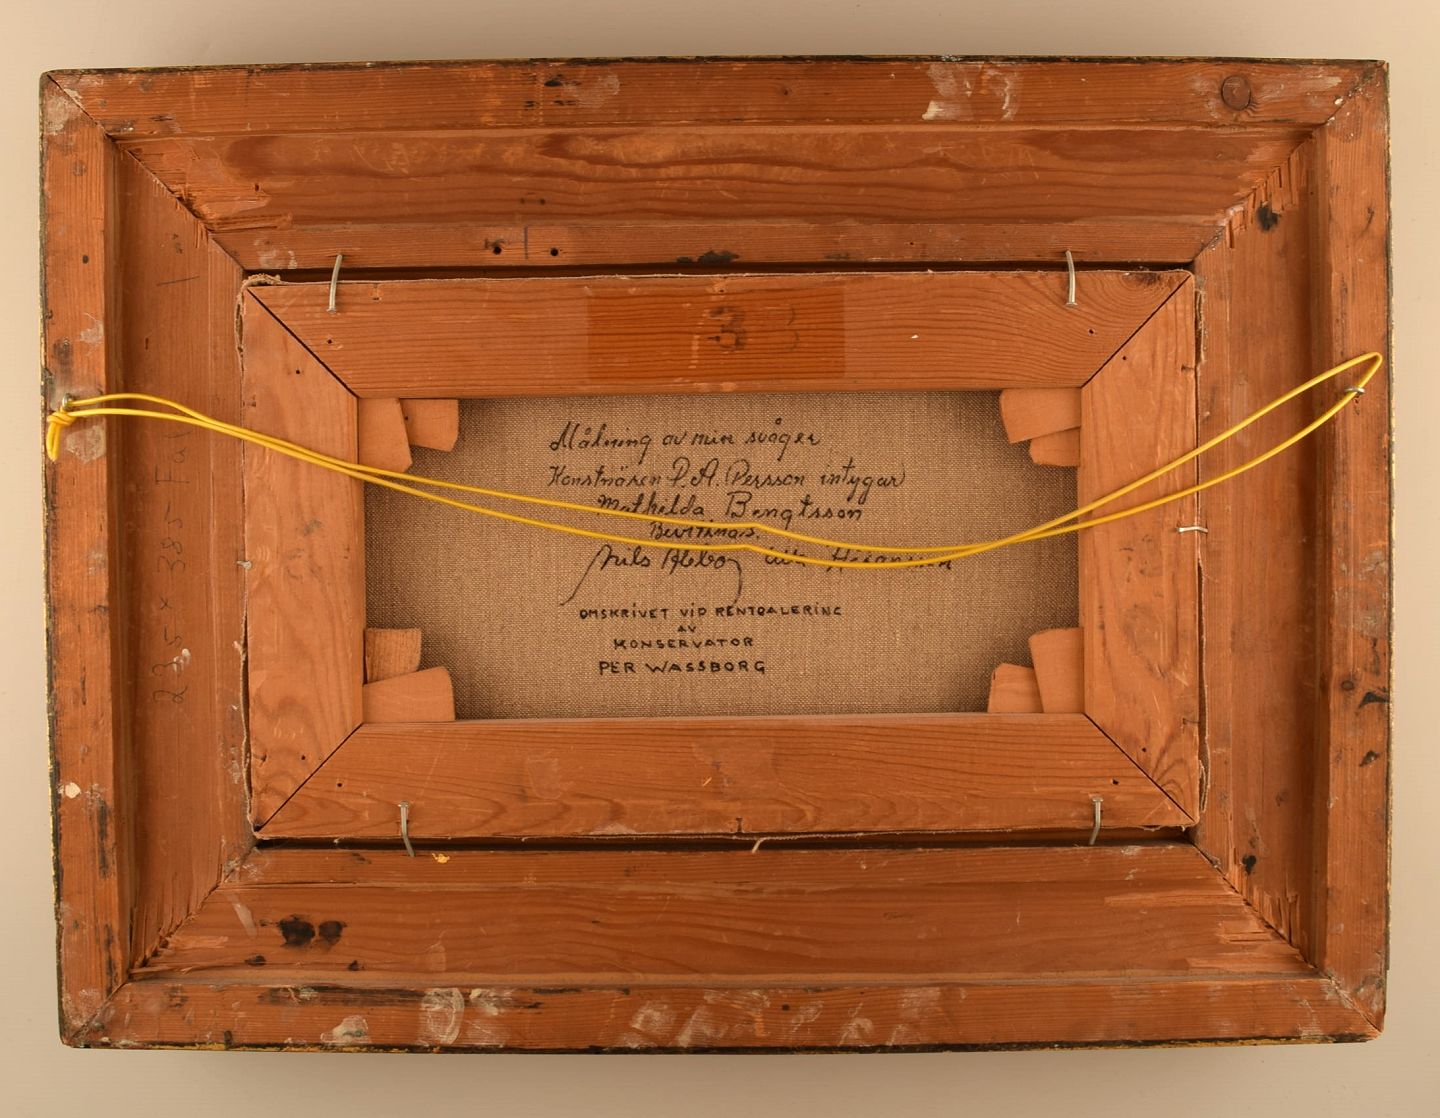 33
Målning av min svåger
Konstnären P. A. Persson intygar
Mathilda Bengtsson
Nils Abbo
OMSKRIVET VID RENTOALERING
AV
KONSERVATOR
PER WASSBORG
23,5 x 38,5